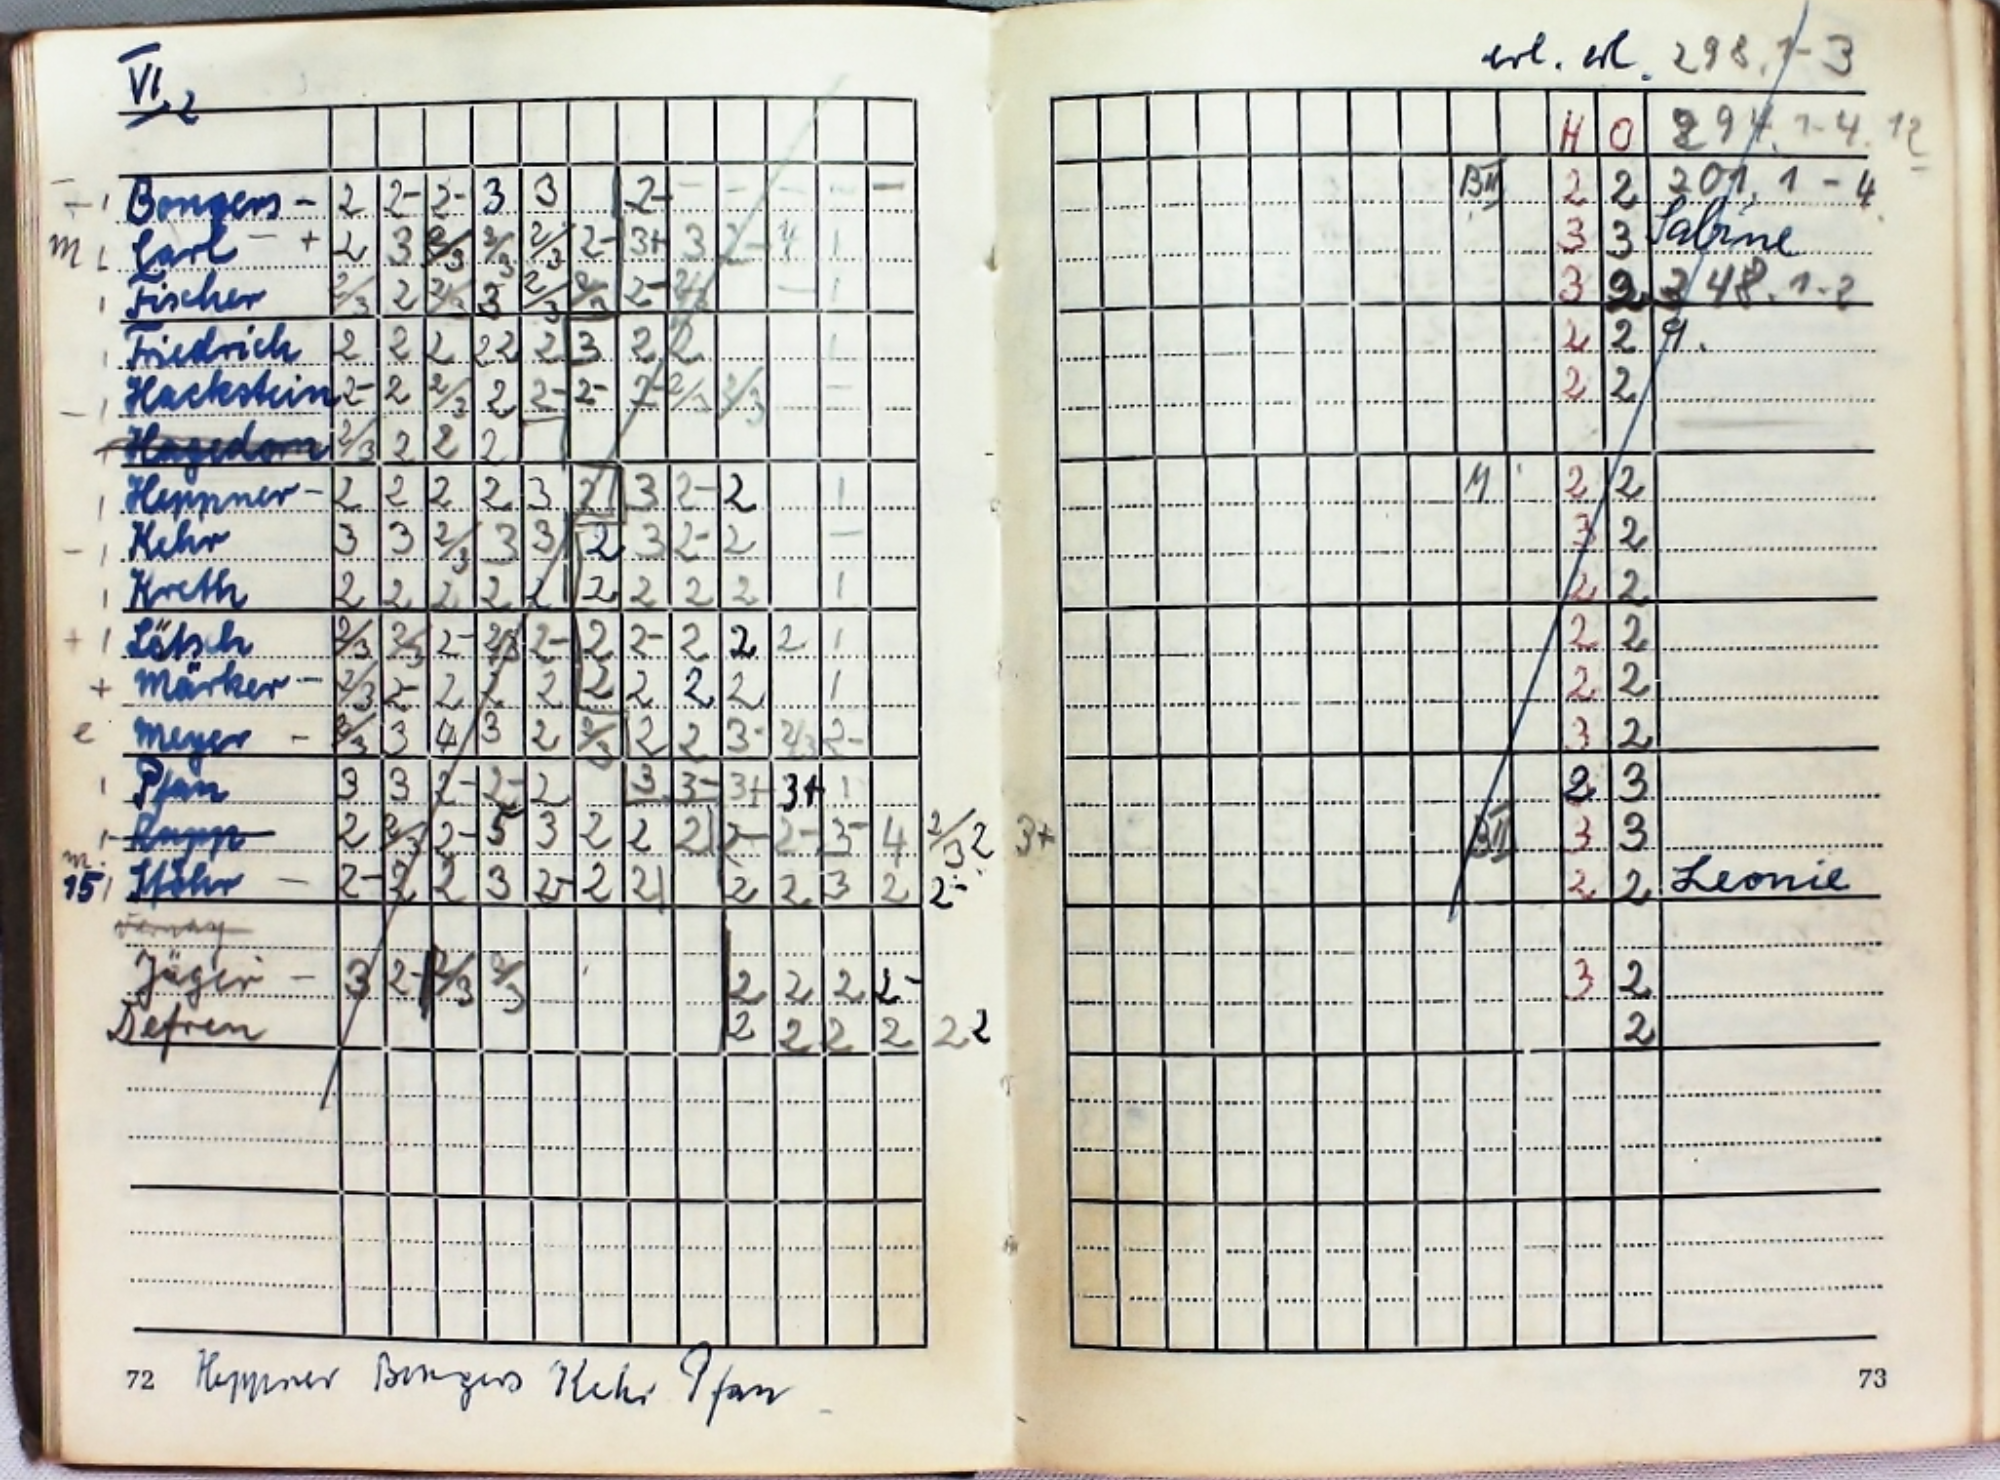 VI,2
Bongers - 2 2- 2- 3 3 2- - - - - -
m Carl - + 2 3 2/3 2/3 2/3 2- 3+ 3
Fischer 2/3 2 2/3 3 2/3 2/3 2- 2/3 - 1
Friedrich 2 2 2 2 2 2 3 2 2 1
- Hackstein 2- 2 2/3 2 2- 2- 2- 2/3 2/3 -
Hagedorn 2/3 2 2 2
Heppner - 2 2 2 2 3 2 3 2- 2 1
- Kehr 3 3 2/3 3 3 2 3 2- 2 -
Kreth 2 2 2 2 2 2 2 2 2 1
+ 1 Lötsch 2/3 2/3 2- 2/3 2- 2 2- 2 2 2 1
+ Märker - 2/3 2- 2 2 2 2 2 2 2 1
e Meyer - 2/3 3 4 3 2 2/3 2 2 3- 2/3 2-
Pfau 3 3 2- 2- 2 3 3- 3+ 3+ 1
Rupp 2 2/3 2- 5 3 2 2 2 2- 2- 3- 4 2/3 2 3+
m. 15 Stöhr - 2- 2 2 3 2- 2 2 2 2 3 2 2-
Jäger - 3 2- 2/3 2/3 2 2 2 2-
Defren 2 2 2 2 2 2
72 Heppner Bongers Kehr Pfau
erl. erl. 298.1-3
H O 294.1-4.12
BII 2 2 201.1-4
3 3 Sabine
3 2 248.1-2
2 2 9.
2 2
M 2 2
3 2
2 2
2 2
2 2
3 2
2 3
BII 3 3
2 2 Leonie
3 2
2
73